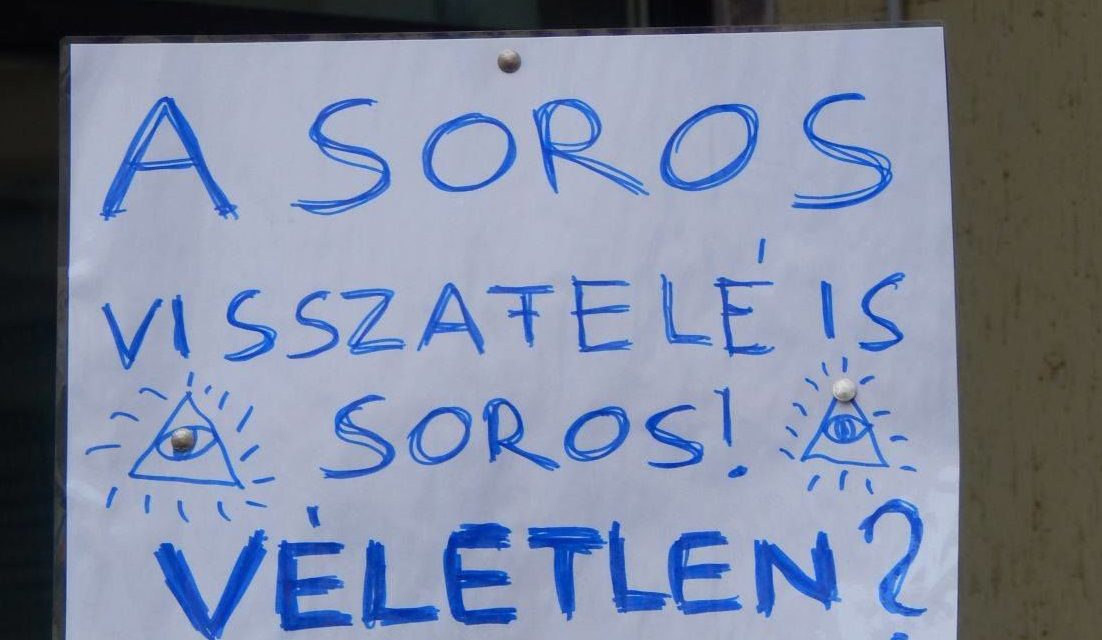 A SOROS
VISSZAFELÉ IS
SOROS!
VÉLETLEN?